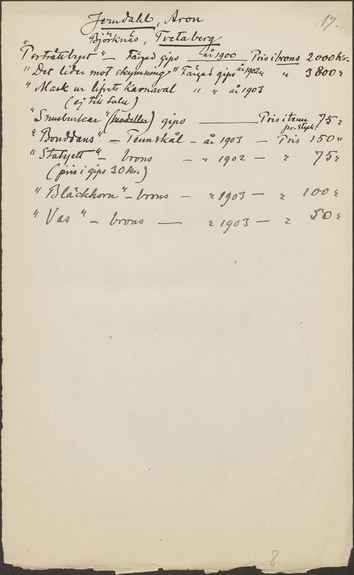 17.
Jerndahl, Aron
Björknäs, Tretaberg
"Porträtbyst" – Färgad gips – år 1900 Pris i brons 2000 kr.
"Det lider mot skymning" Färgad gips år 1902 " 3800 "
"Mask ur lifvets karnaval " " år 1903
(ej till salu)
"Snusburkar" (modeller) gips —— Pris i tenn pr. styck 75 "
"Bonddans" – Tennskål – år 1903 – Pris 150 "
"Statyett" – brons – " 1902 – " 75 "
(pris i gips 30 kr.)
"Bläckhorn" – brons – " 1903 – " 100 "
"Vas" – brons — " 1903 – " 50 "
8